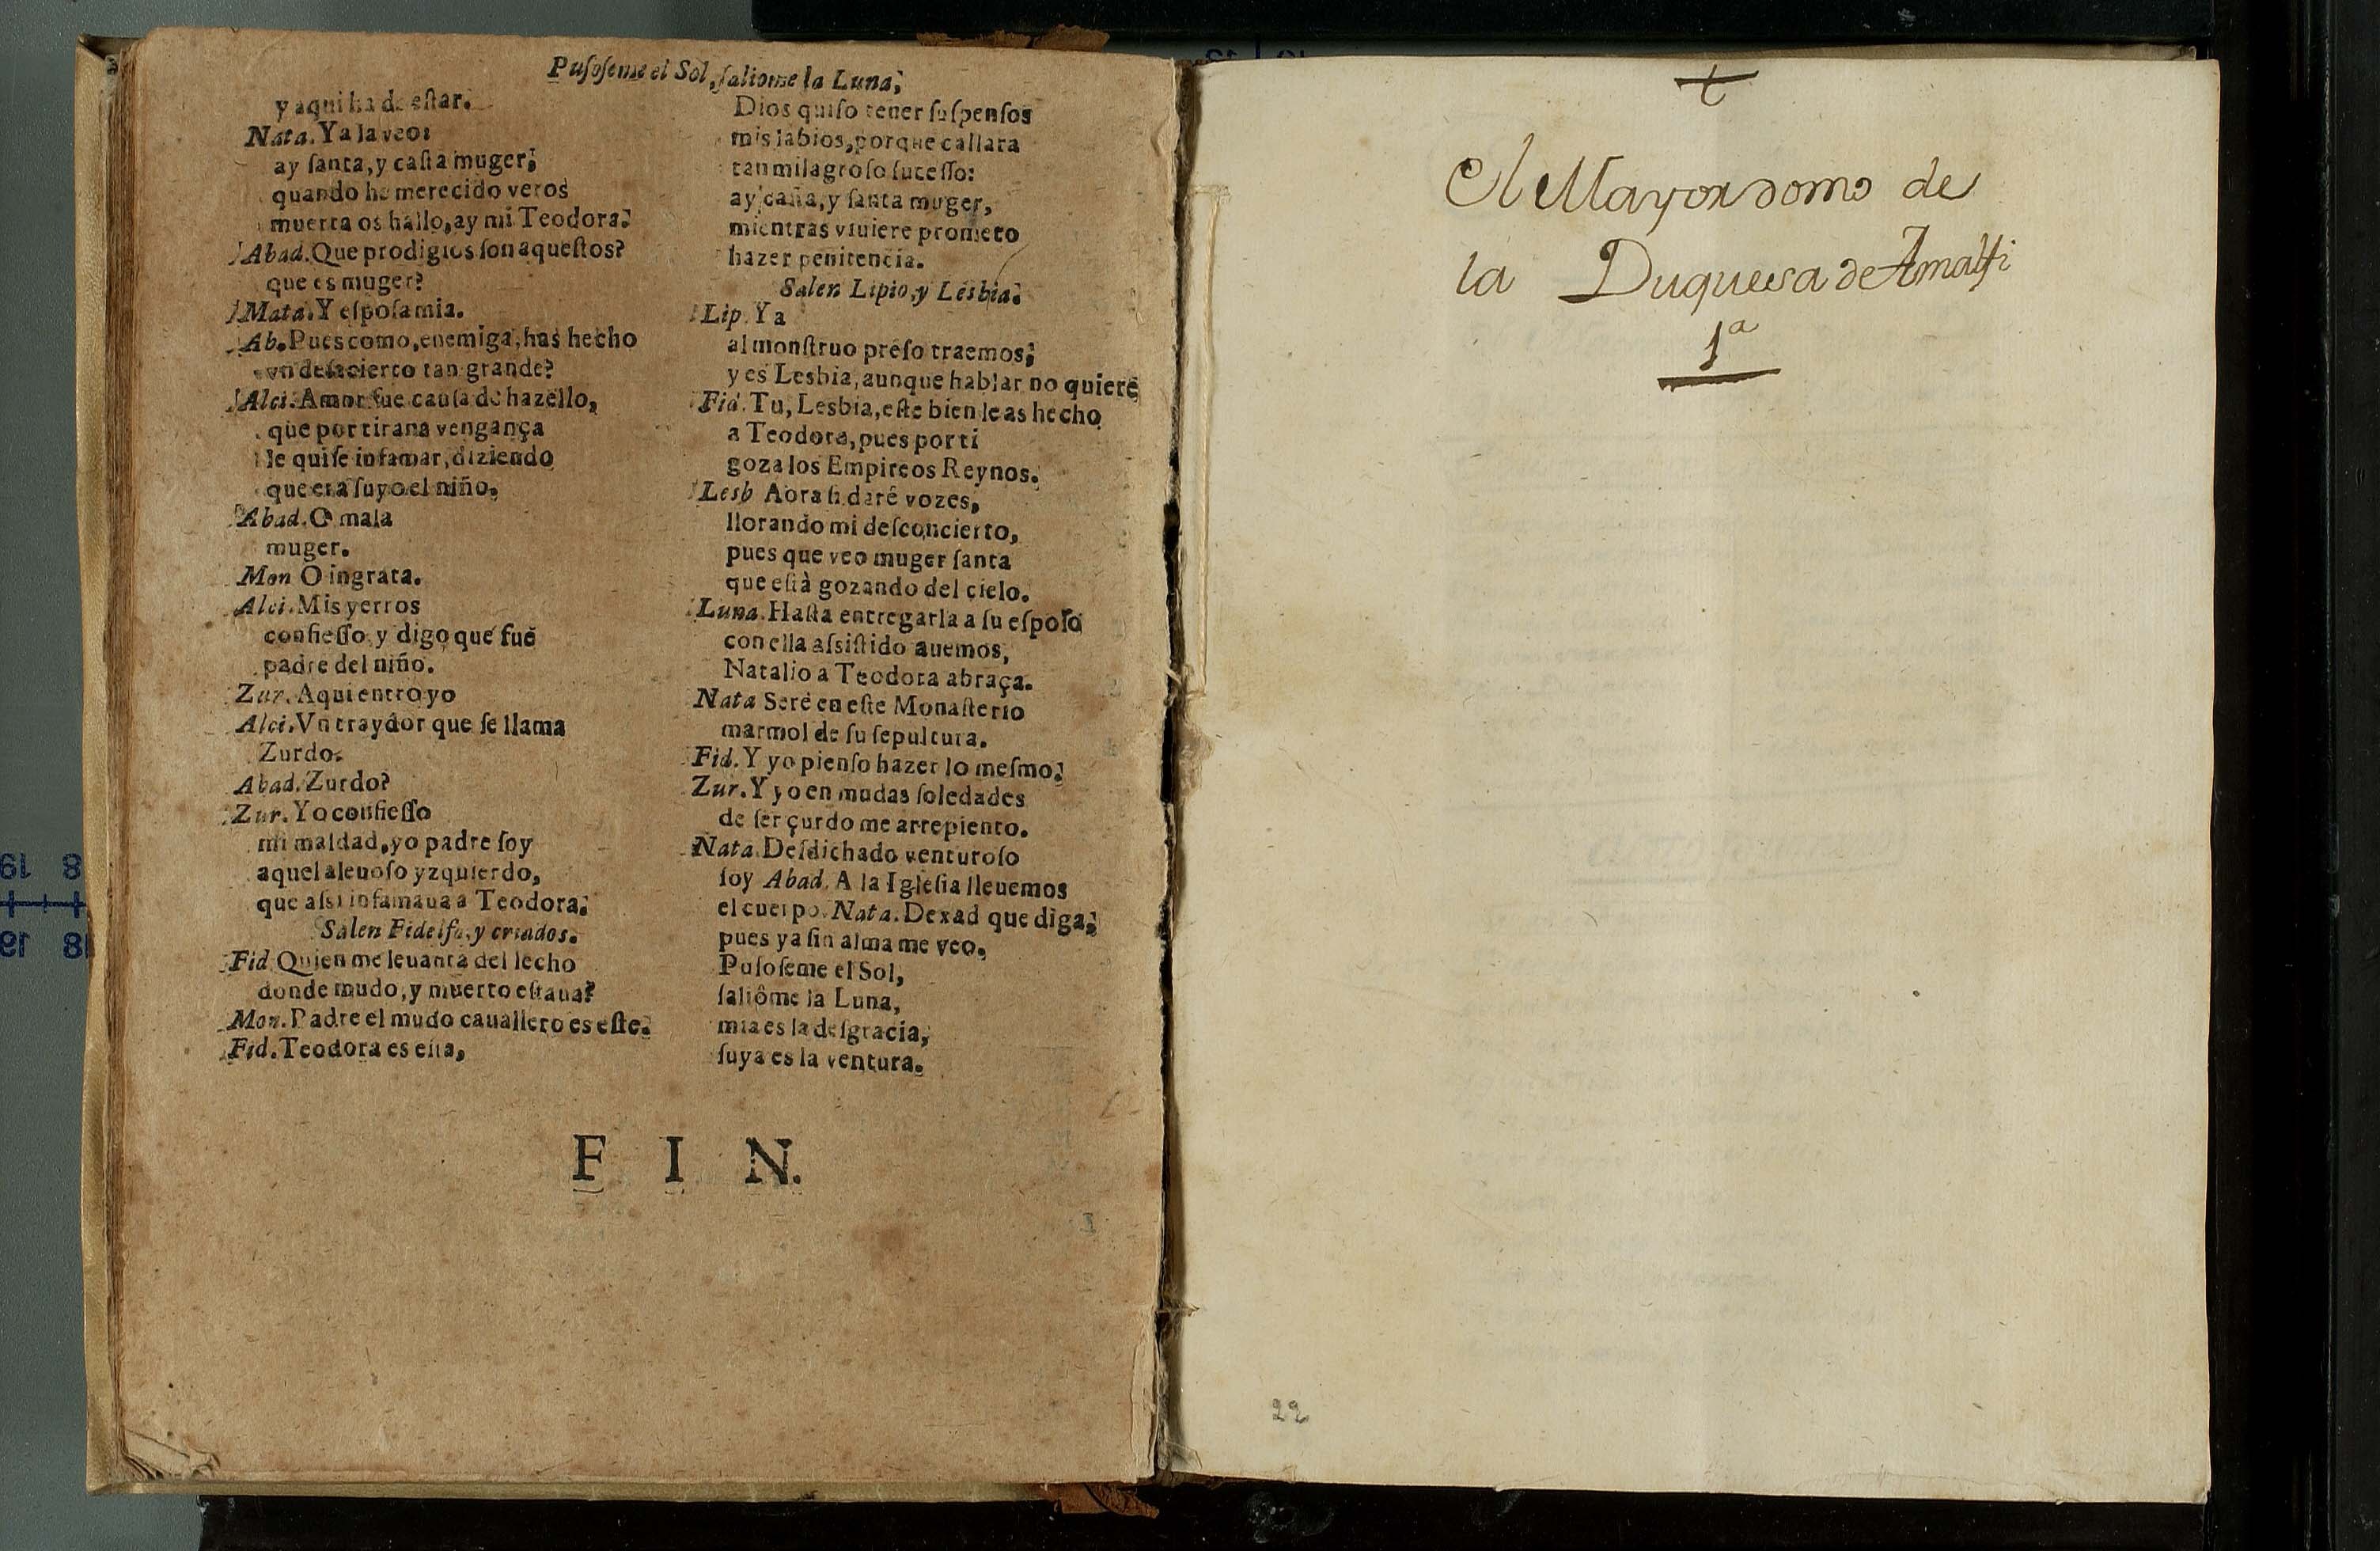 Pusoseme el Sol, saliome la Luna;
y aqui ha de estar.
Nata. Ya la veo:
ay santa, y casta muger;
quando he merecido veros
muerta os hallo, ay mi Teodora.
Abad. Que prodigios son aquestos?
que es muger?
Nata. Y esposa mia.
Ab. Pues como, enemiga, has hecho
vn desacierto tan grande?
Alci. Amor fue causa de hazello,
que por tirana vengança
le quise infamar, diziendo
que era suyo el niño.
Abad. O mala
muger.
Mon O ingrata.
Alci. Mis yerros
confiesso, y digo que fue
padre del niño.
Zur. Aqui entro yo
Alci. Vn traydor que se llama
Zurdo.
Abad. Zurdo?
Zur. Yo confiesso
mi maldad, yo padre soy
aquel aleuoso yzquierdo,
que assi infamaua a Teodora.
Salen Fidelfo, y criados.
Fid Quien me leuanta del lecho
donde mudo, y muerto estaua?
Mon. Padre el mudo cauallero es este.
Fid. Teodora es esta,
Dios quiso tener suspensos
mis labios, porque callara
tan milagroso sucesso:
ay casta, y santa muger,
mientras viuiere prometo
hazer penitencia.
Salen Lipio, y Lesbia.
Lip. Ya
al monstruo preso traemos;
y es Lesbia, aunque hablar no quiere
Fid. Tu, Lesbia, este bien le as hecho
a Teodora, pues por ti
goza los Empireos Reynos.
Lesb Aora si daré vozes,
llorando mi desconcierto,
pues que veo muger santa
que està gozando del cielo.
Luna. Hasta entregarla a su esposo
con ella assistido auemos,
Natalio a Teodora abraça.
Nata Seré en este Monasterio
marmol de su sepultura.
Fid. Y yo pienso hazer lo mesmo.
Zur. Y yo en mudas soledades
de ser çurdo me arrepiento.
Nata. Desdichado venturoso
soy Abad. A la Iglesia lleuemos
el cuerpo. Nata. Dexad que diga,
pues ya sin alma me veo.
Pusoseme el Sol,
saliôme la Luna,
mia es la desgracia,
suya es la ventura.
F I N.
El Mayordomo de
la Duquesa de Amalfi
1ª
22